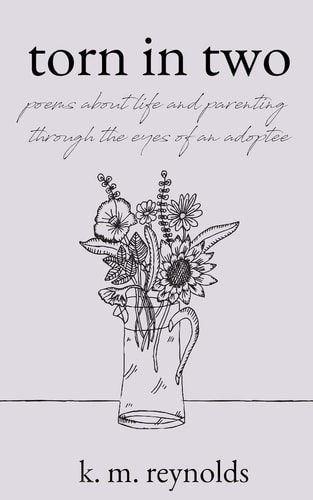 torn in two
poems about life and parenting
through the eyes of an adoptee
k. m. reynolds